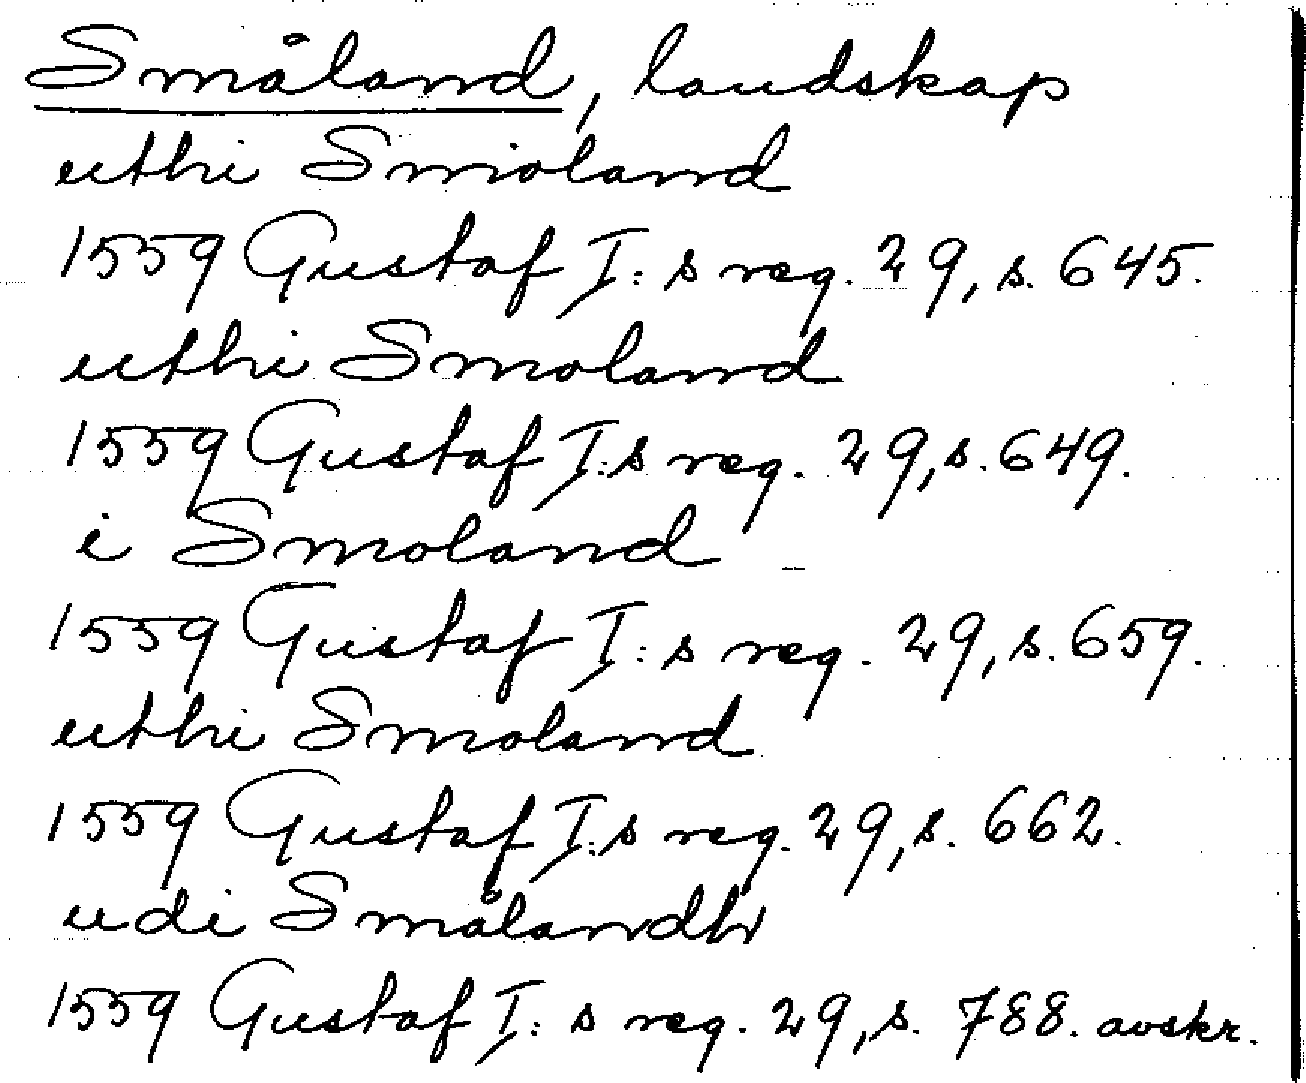 Småland, landskap
uthi Smoland
1559 Gustaf I:s reg. 29, s. 645.
uthi Smoland
1559 Gustaf I:s reg. 29, s. 649.
i Smoland
1559 Gustaf I:s reg. 29, s. 659.
uthi Smoland
1559 Gustaf I:s reg. 29, s. 662.
udi Smålandh
1559 Gustaf I:s reg. 29, s. 788. avskr.